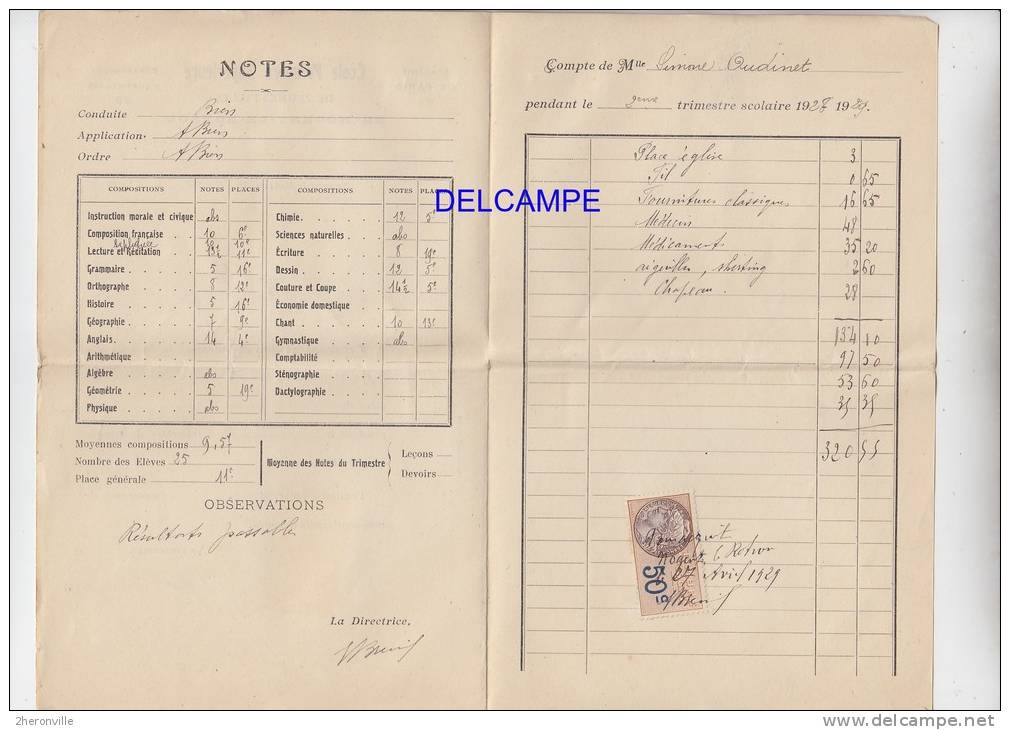 NOTES
Conduite Bien
Application. A Bien
Ordre A Bien
COMPOSITIONS NOTES PLACES
Instruction morale et civique abs
Composition française 10 6e
Lecture et Récitation 13½ 11e
Grammaire 5 16e
Orthographe 8 12e
Histoire 5 16e
Géographie 7 9e
Anglais 14 4e
Arithmétique
Algèbre abs
Géométrie 5 19e
Physique abs
COMPOSITIONS NOTES PLAC
Chimie 12 5e
Sciences naturelles abs
Écriture 8 19e
Dessin 12 5e
Couture et Coupe 14½ 5e
Économie domestique
Chant 10 13e
Gymnastique abs
Comptabilité
Sténographie
Dactylographie
Moyennes compositions 9,57
Nombre des Elèves 25
Place générale 11e
Moyenne des Notes du Trimestre
Leçons
Devoirs
OBSERVATIONS
Résultats passables
La Directrice,
Compte de Mlle Simone Oudinet
pendant le 2eme trimestre scolaire 1928 1929.
Place église 3
Fil 0 65
Fournitures classiques 16 65
Médecin 48
Médicaments 35 20
aiguilles, sherting 2 60
Chapeau 28
134 10
97 50
53 60
35 35
320 55
50
Pour acquit
Nogent le Rotrou
27 Avril 1929
DELCAMPE
2heronville
delcampe.net